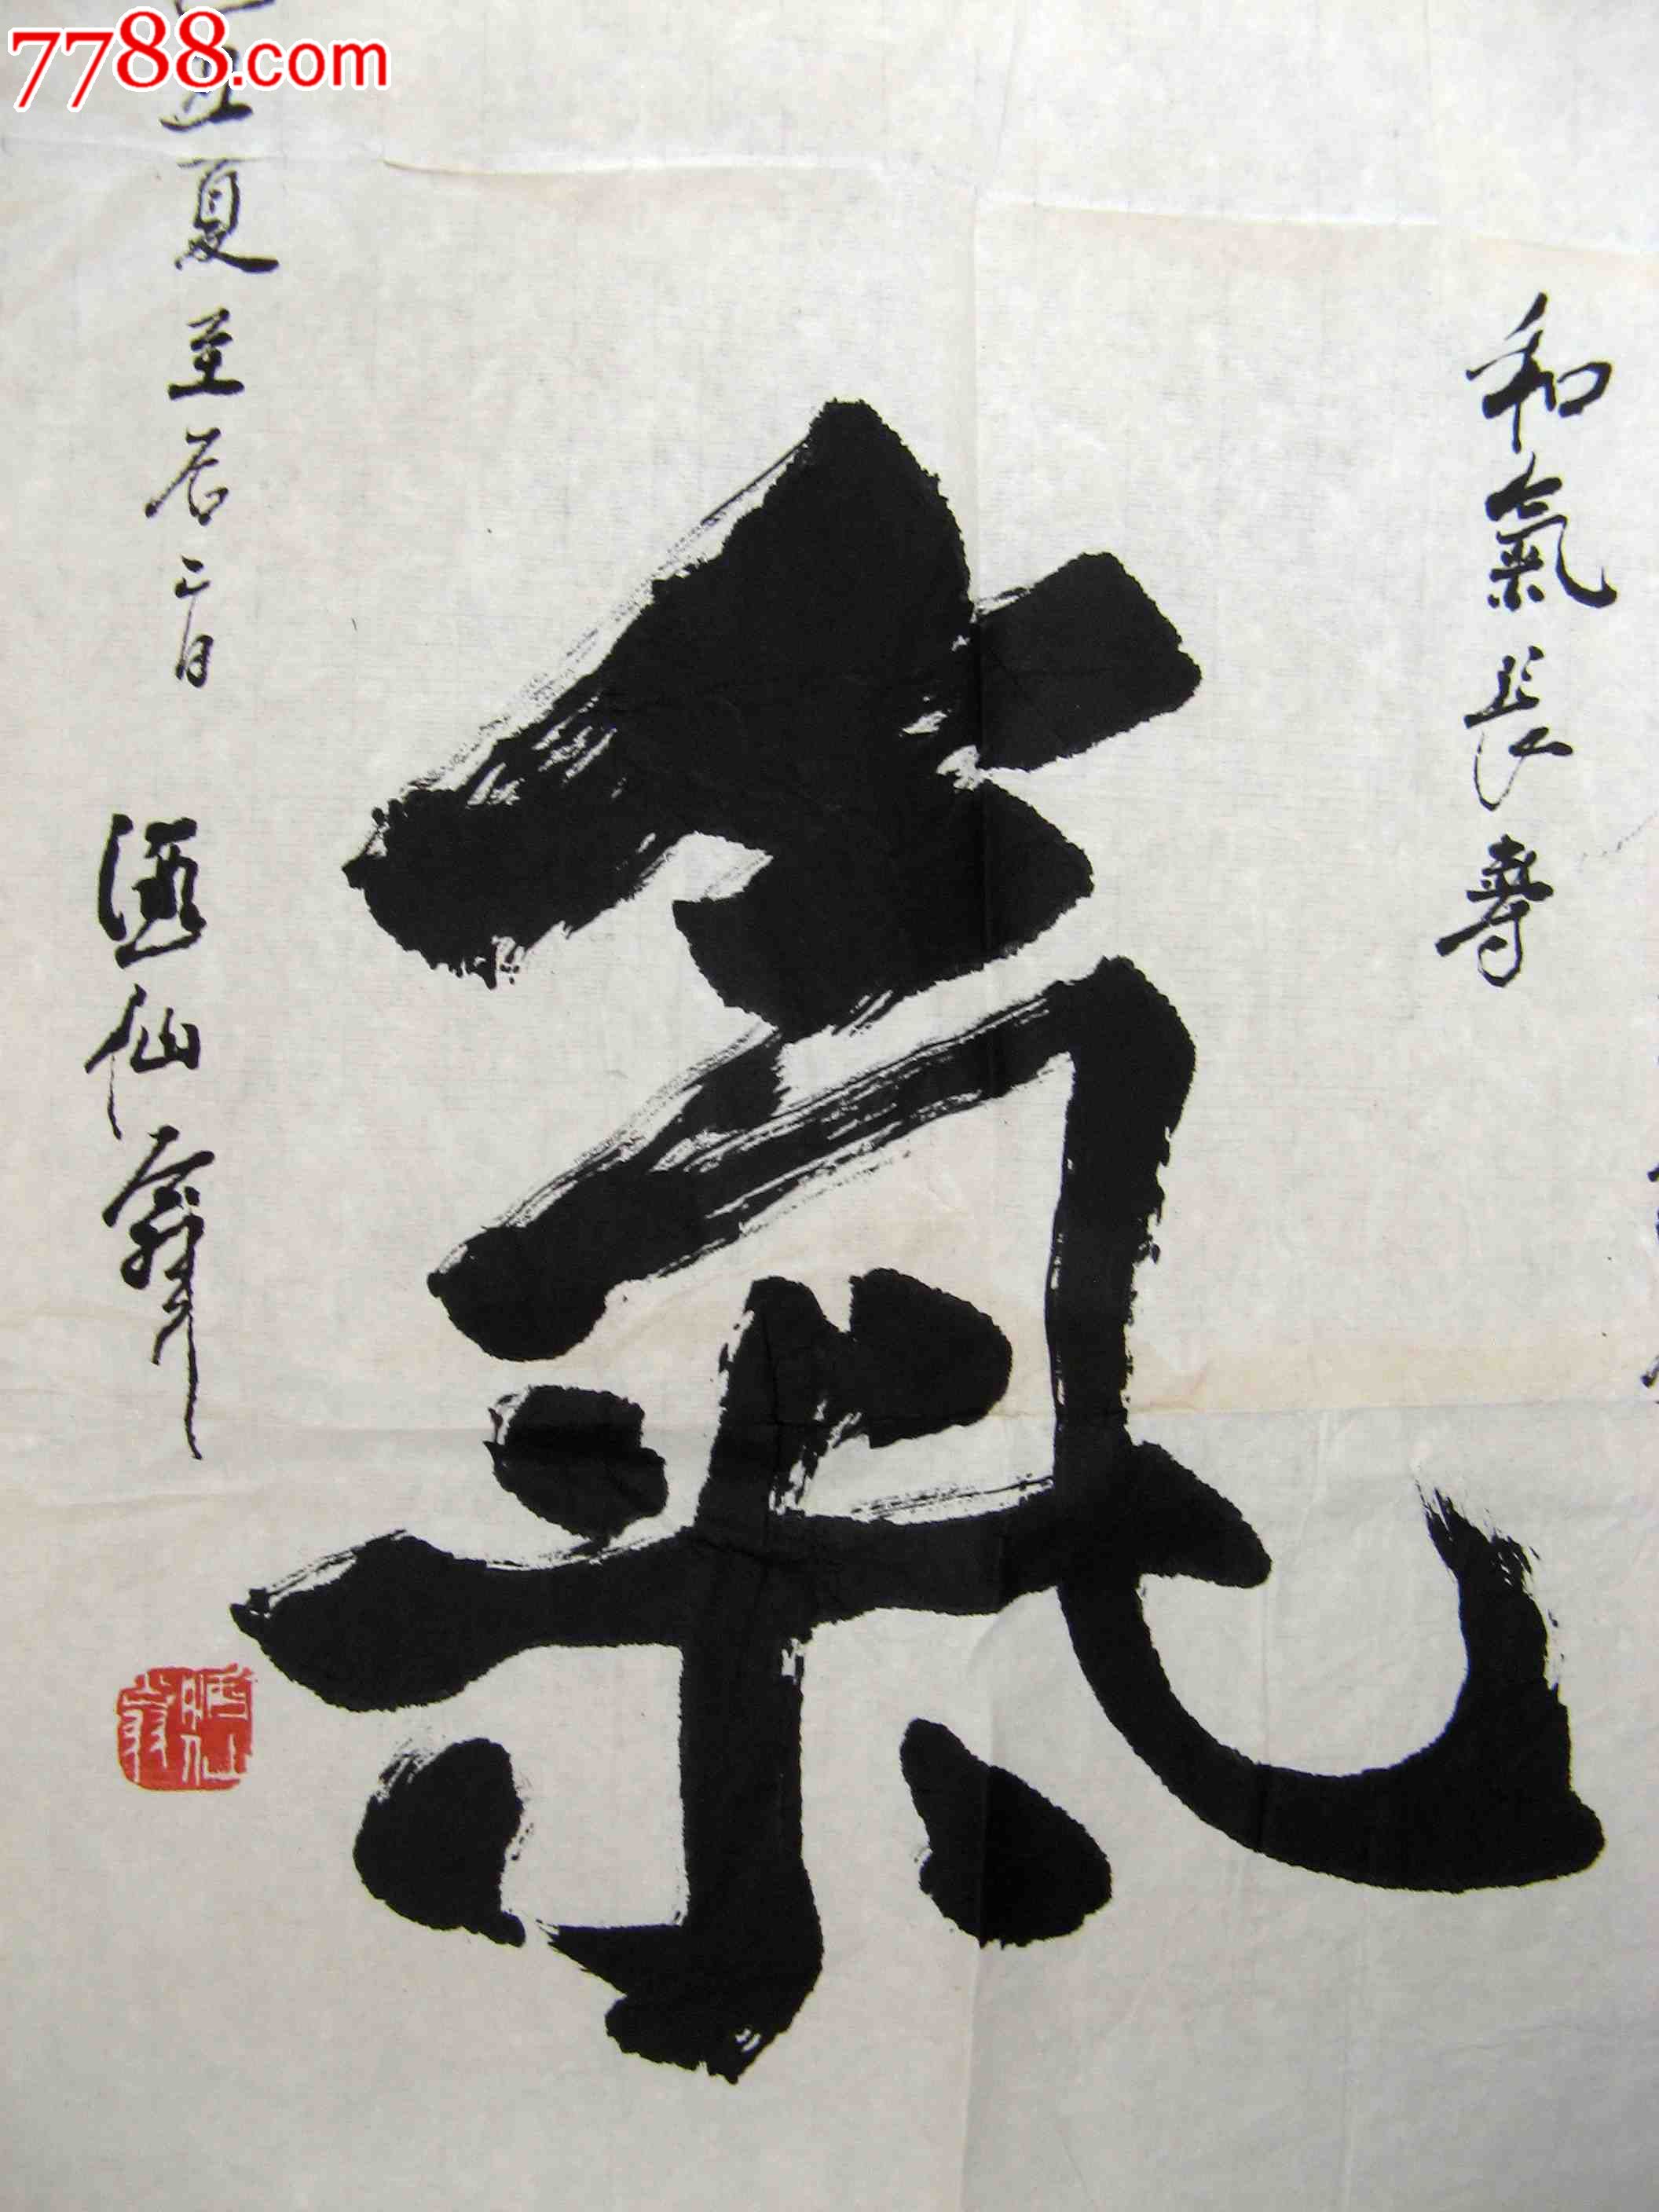 7788.com
和氣長壽
氣
丑夏至后二日
酒仙翁
酒仙翁